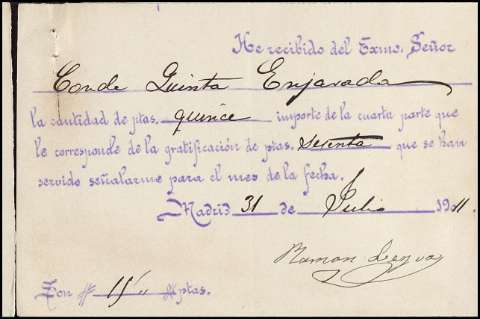 He recibido del Exmo. Señor
Conde Quinta Enjarada
la cantidad de ptas. quince importe de la cuarta parte que
le corresponde de la gratificación de ptas. setenta que se han
servido señalarme para el mes de la fecha.
Madrid 31 de Julio 1911
Ramon
Son # 15 # ptas.